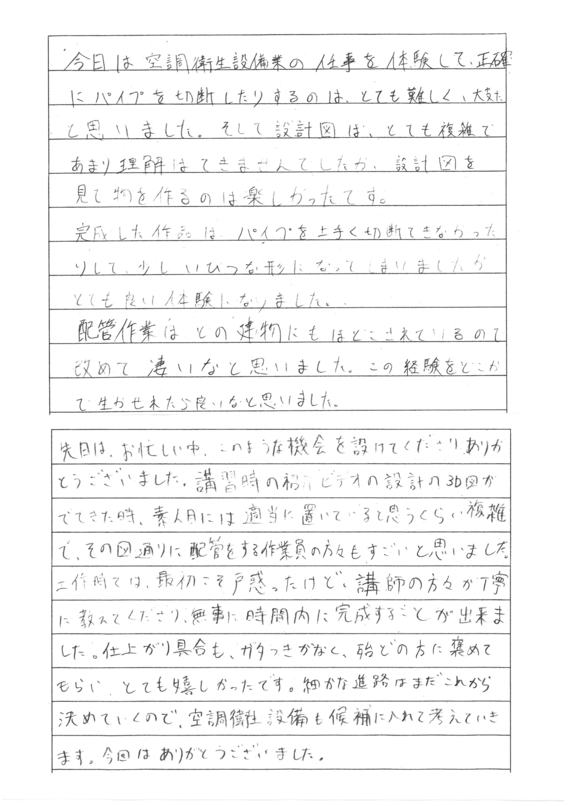 今日は空調衛生設備業の仕事を体験して、正確
にパイプを切断したりするのは、とても難しく、大変だ
と思いました。そして設計図は、とても複雑で
あまり理解はできませんでしたが、設計図を
見て物を作るのは楽しかったです。
完成した作品は、パイプを上手く切断できなかった
りして、少しいびつな形になってしまいましたが
とても良い体験になりました。
配管作業はどの建物にもほどこされているので
改めて凄いなと思いました。この経験をどこか
で生かせれたら良いなと思いました。
先日は、お忙しい中、このような機会を設けてくださりありが
とうございました。講習時の紹介ビデオの設計の3D図が
でてきた時、素人目には適当に置いていると思うくらい複雑
で、その図通りに配管をする作業員の方々もすごいと思いました。
工作所では、最初こそ戸惑ったけど、講師の方々が丁寧
に教えてくださり、無事に時間内に完成することが出来ま
した。仕上がり具合も、ガタつきがなく、殆どの方に褒めて
もらい、とても嬉しかったです。細かな進路はまだこれから
決めていくので、空調衛生設備も候補に入れて考えていき
ます。今回はありがとうございました。